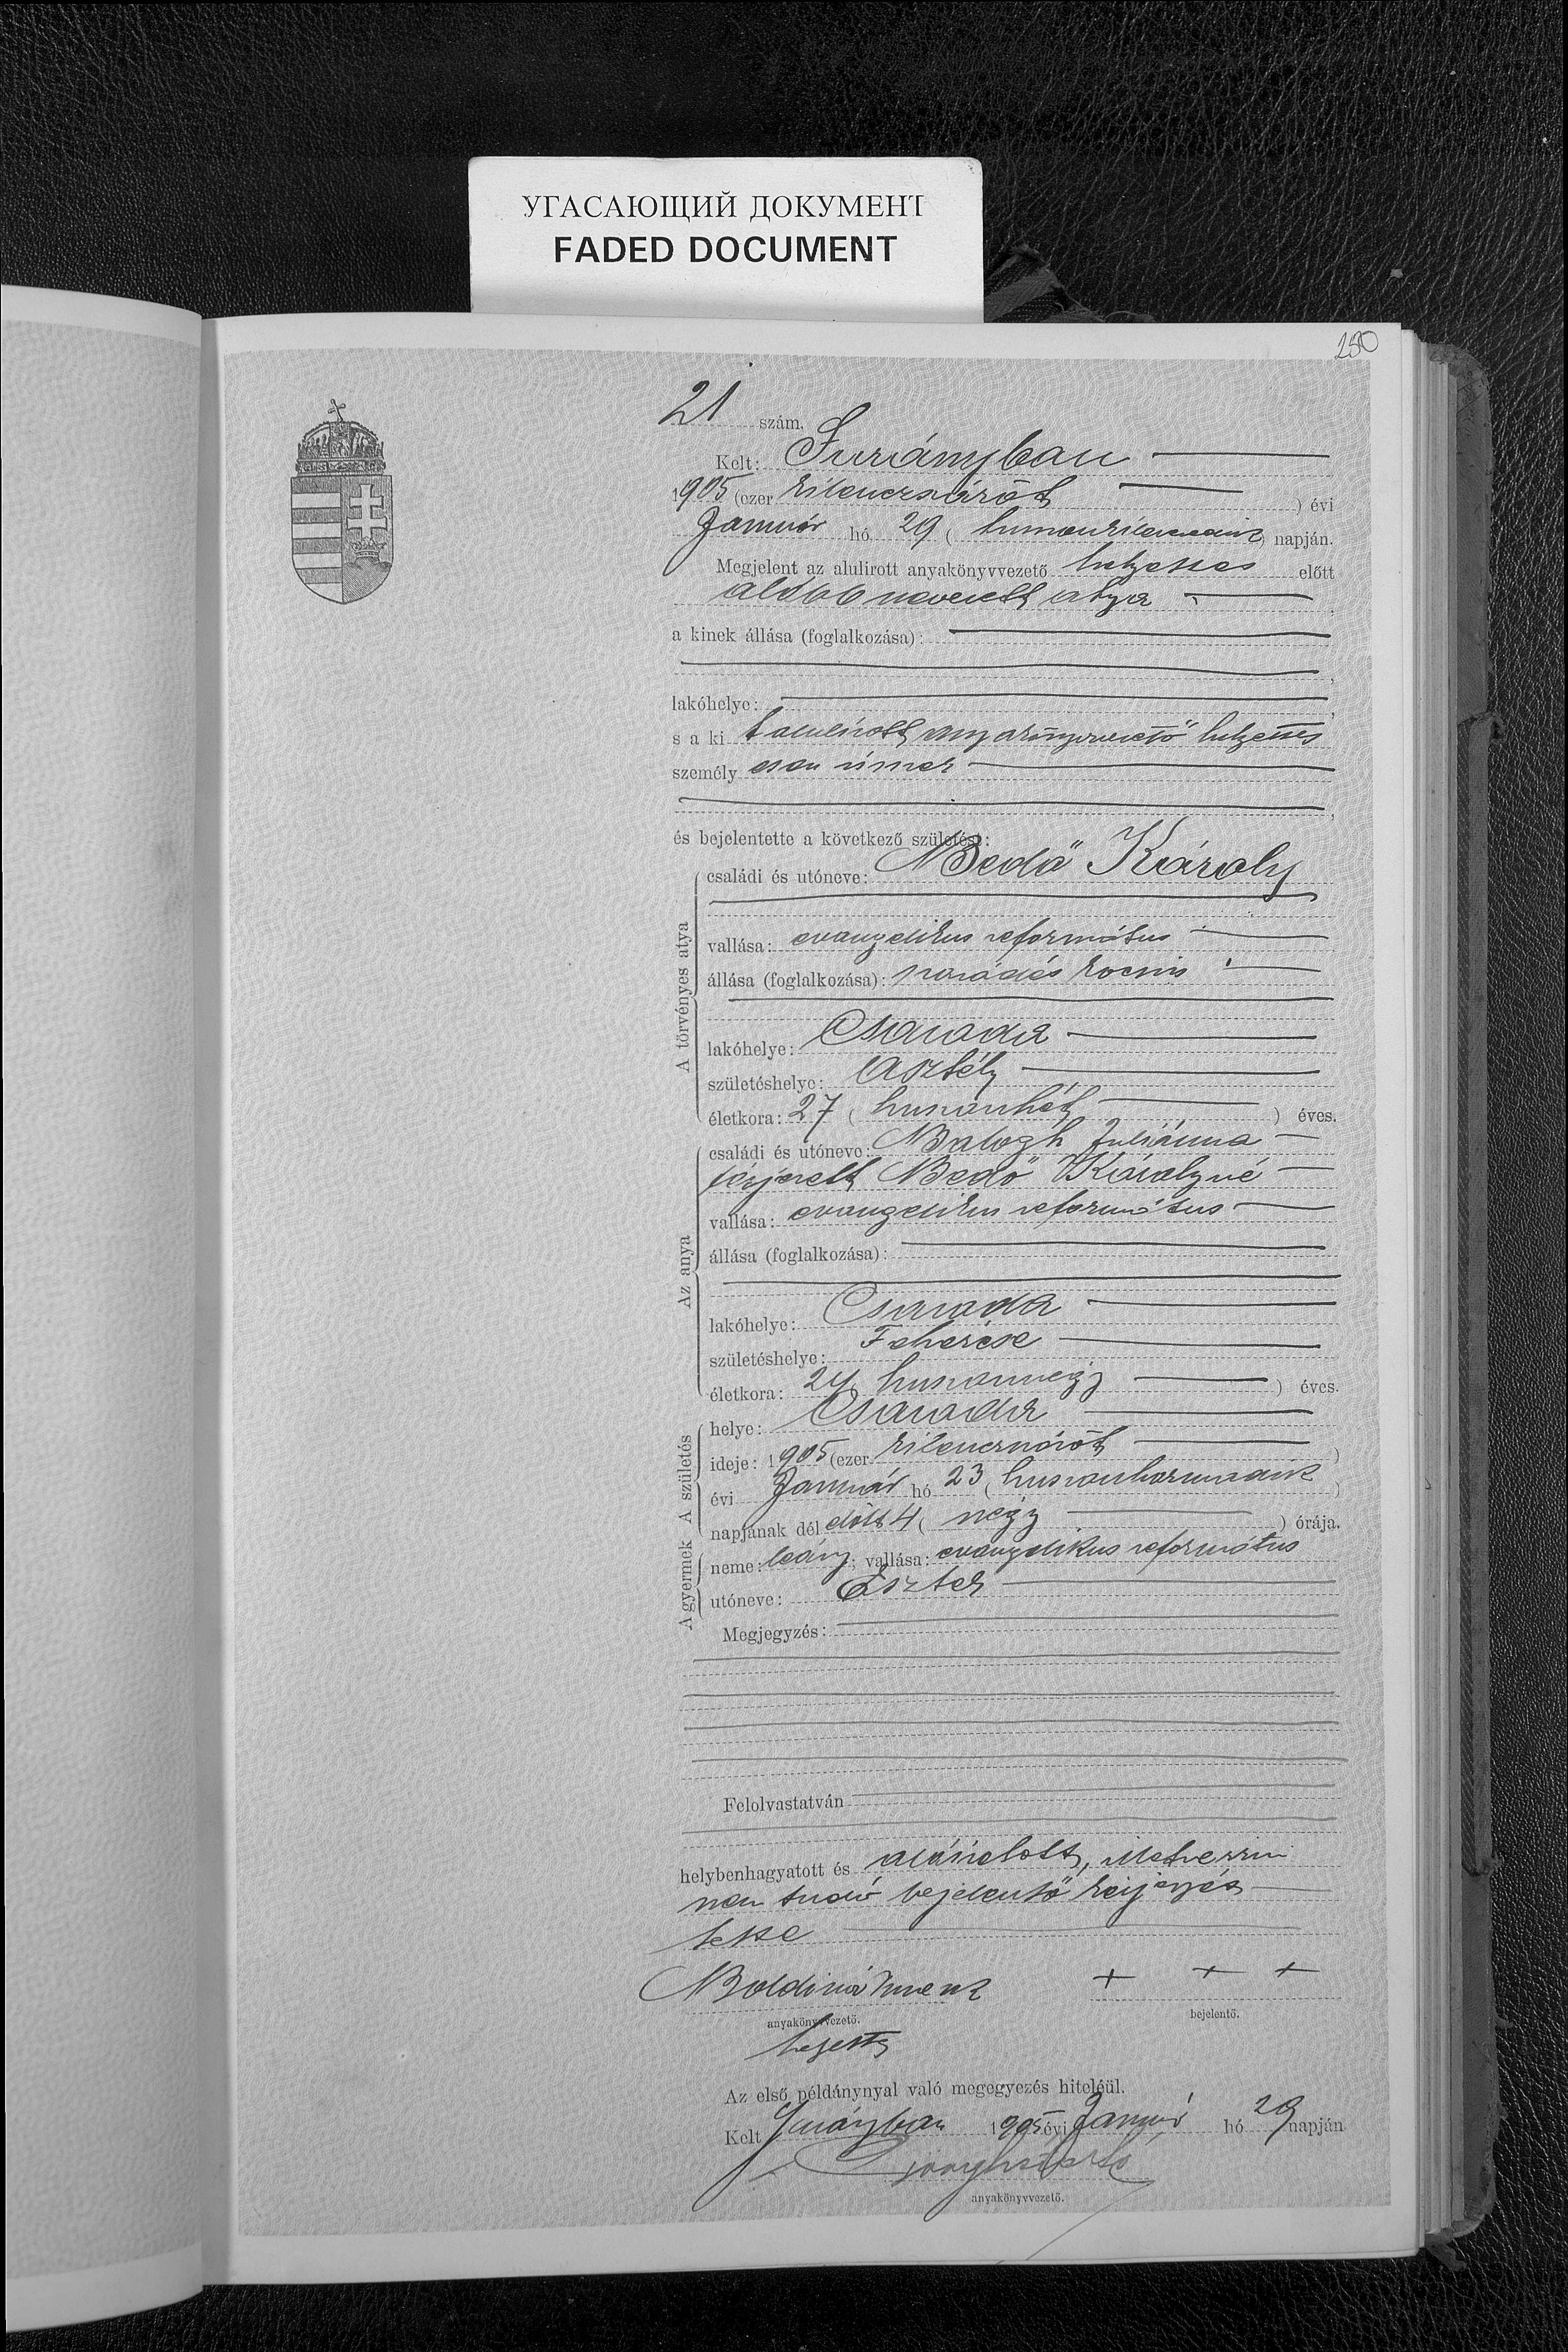 УГАСАЮЩИЙ ДОКУМЕНТ
FADED DOCUMENT
250
21 szám.
Kelt: Surányban
1905 (ezer kilenczszázöt ) évi
Január hó 29 ( huszonkilenczedik ) napján.
Megjelent az alulirott anyakönyvvezető helyettes előtt
alább nevezett atya ,
a kinek állása (foglalkozása):
,
lakóhelye: ,
s a ki t alulírott anyakönyvvezető helyettes
személy esen ismer
,
és bejelentette a következő születést:
A törvényes atya
családi és utóneve: Bedő Károly
vallása: evangelikus református
állása (foglalkozása): parádés kocsis
lakóhelye: Csaroda
születéshelye: Asztély
életkora: 27 ( huszonhét ) éves.
Az anya
családi és utóneve: Balogh Juliánna
férjezett Bedő Károlyné
vallása: evangelikus református
állása (foglalkozása):
lakóhelye: Csaroda
születéshelye: Fehércse
életkora: 24 huszonnégy ) éves.
A születés
helye: Csaroda
ideje: 1905 (ezer kilenczszázöt )
évi Január hó 23 ( huszonharmadik )
napjának dél előtt 4 ( négy ) órája.
A gyermek
neme: leány; vallása: evangelikus református
utóneve: Eszter
Megjegyzés:
Felolvastatván
helybenhagyatott és aláíratott, illetve írni
nem tudó bejelentő kézjegyés
tette
+ + +
anyakönyvvezető. bejelentő.
helyettes
Az első példánynyal való megegyezés hiteléül.
Kelt Surányban 1905 évi Január hó 29 napján
anyakönyvvezető.